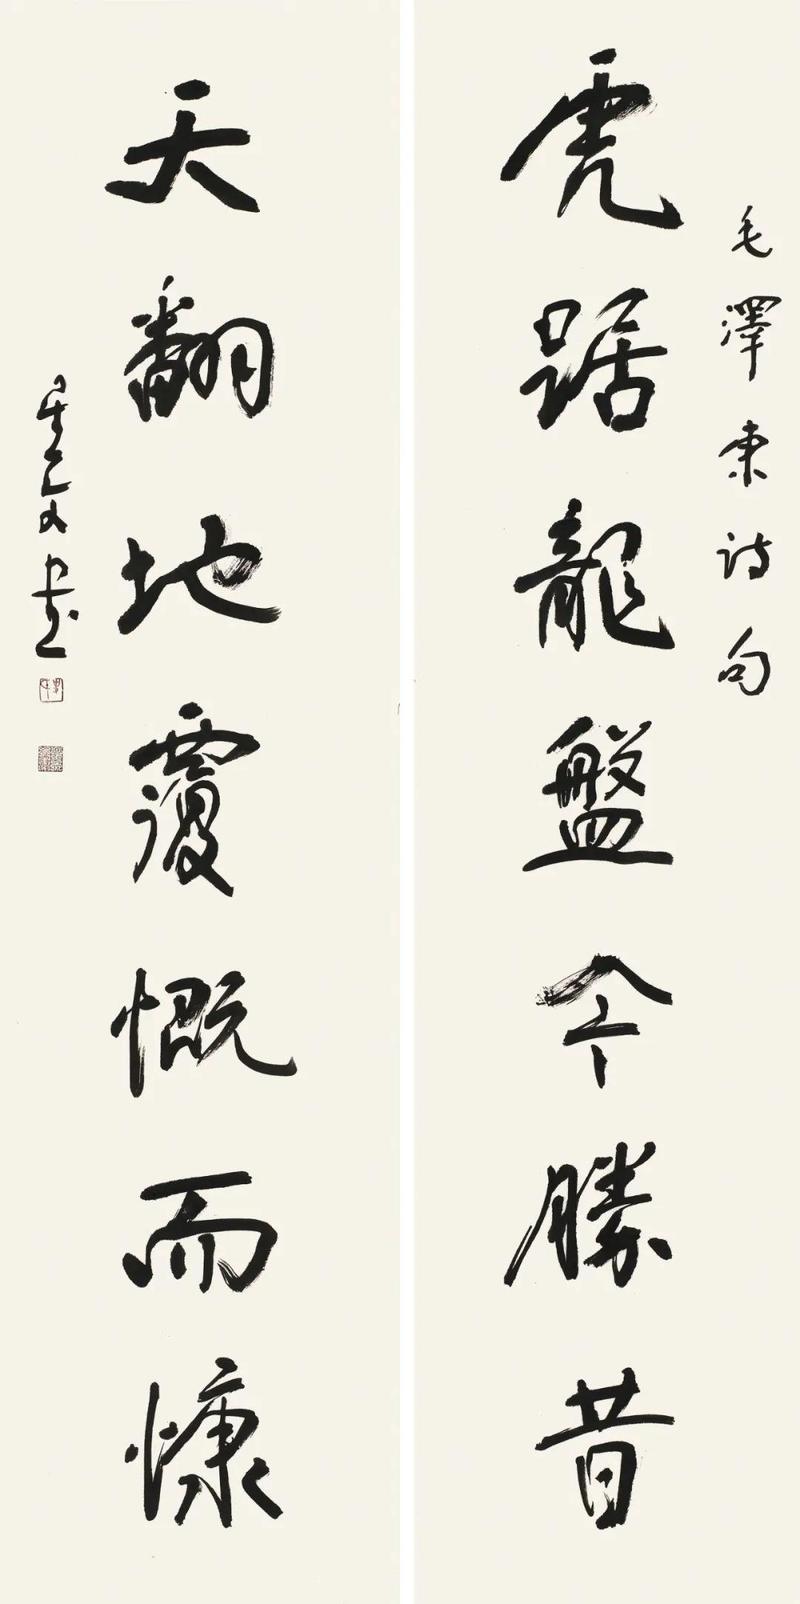 毛澤東诗句
虎踞龍盤今勝昔
天翻地覆慨而慷